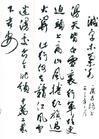 減字木蘭花
廣昌路上
漫天皆白雪裏行軍情
更迫頭上高山風捲紅旗過
大關此行何去贛江風雪
迷漫處命令昨頒十萬工農
下吉安